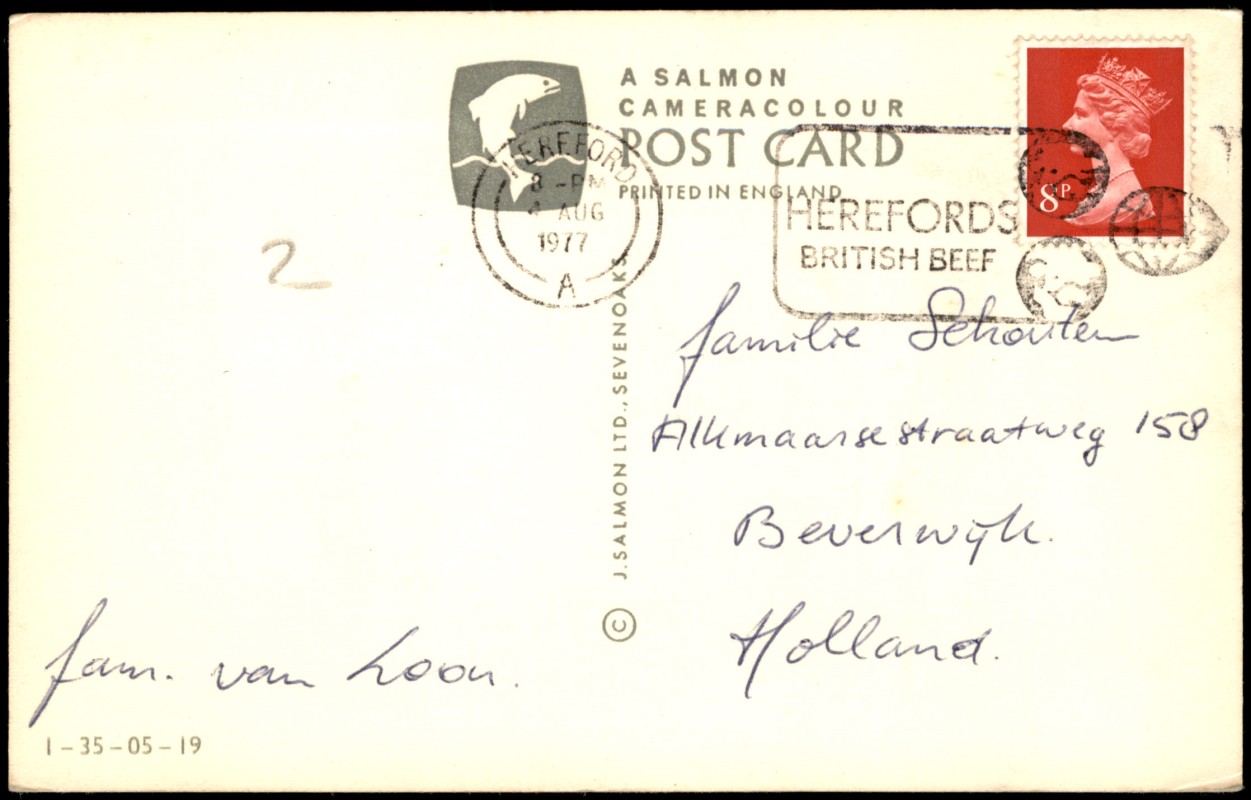 A SALMON
CAMERACOLOUR
POST CARD
PRINTED IN ENGLAND
HEREFORD
8 - PM
4 AUG
1977
A
HEREFORDS
BRITISH BEEF
8P
2
familie Schouten
Alkmaarsestraatweg 158
Beverwijk.
Holland.
© J. SALMON LTD., SEVENOAKS
fam. van Loon.
1-35-05-19